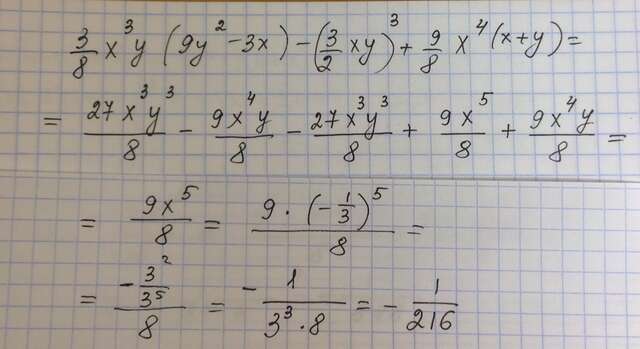 3/8 x³y (9y² - 3x) - (3/2 xy)³ + 9/8 x⁴(x+y) =
= 27x³y³/8 - 9x⁴y/8 - 27x³y³/8 + 9x⁵/8 + 9x⁴y/8 =
= 9x⁵/8 = 9·(-1/3)⁵/8 =
= -3²/3⁵/8 = -1/3³·8 = -1/216